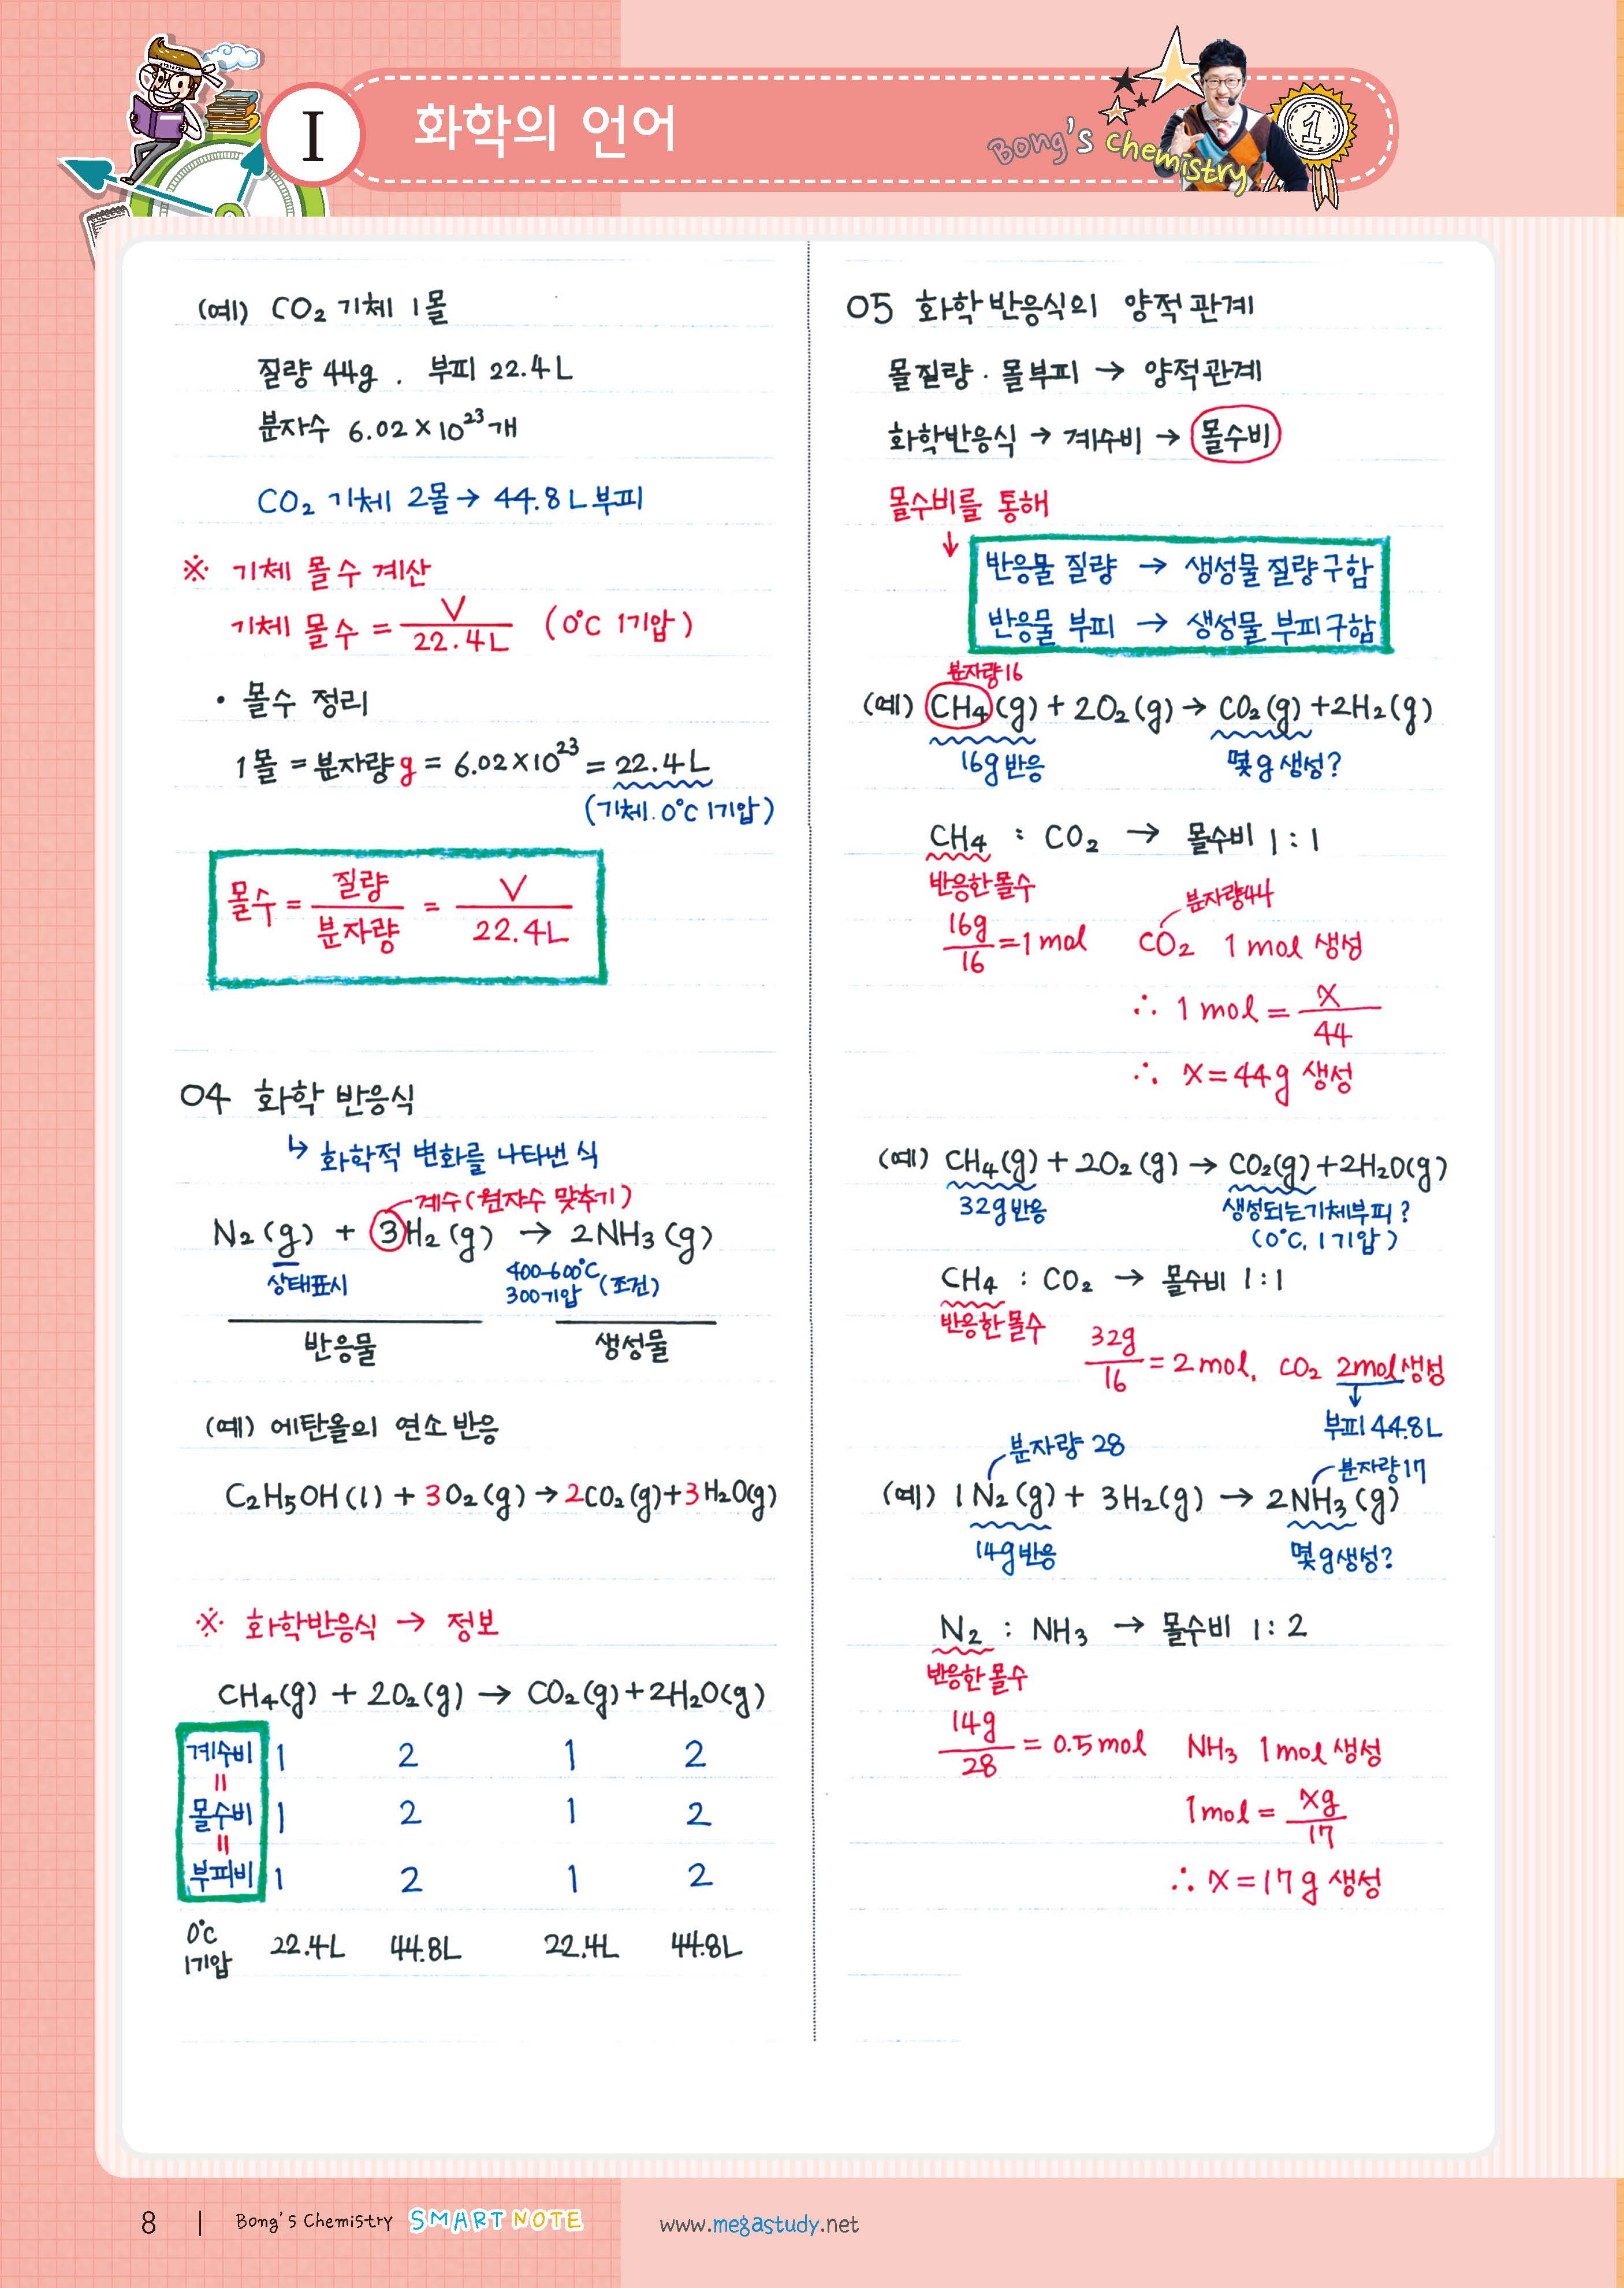 I
화학의 언어
Bong's chemistry
1
(예) CO₂ 기체 1몰
질량 44g. 부피 22.4L
분자수 6.02×10²³개
CO₂ 기체 2몰→ 44.8L부피
※ 기체 몰수 계산
기체 몰수 = V/22.4L (0°C 1기압)
· 몰수 정리
1몰 = 분자량g = 6.02×10²³ = 22.4L
(기체. 0°C 1기압)
몰수 = 질량/분자량 = V/22.4L
04 화학 반응식
↳ 화학적 변화를 나타낸 식
계수(원자수 맞추기)
N₂(g) + 3H₂(g) → 2NH₃(g)
상태표시
400-600°C
300기압 (조건)
반응물 생성물
(예) 에탄올의 연소 반응
C₂H₅OH(l) + 3O₂(g) → 2CO₂(g)+3H₂O(g)
※ 화학반응식 → 정보
CH₄(g) + 2O₂(g) → CO₂(g)+2H₂O(g)
계수비 1 2 1 2
=
몰수비 1 2 1 2
=
부피비 1 2 1 2
0°C
1기압 22.4L 44.8L 22.4L 44.8L
05 화학반응식의 양적관계
몰질량·몰부피 → 양적관계
화학반응식 → 계수비 → 몰수비
몰수비를 통해
↓
반응물 질량 → 생성물 질량구함
반응물 부피 → 생성물 부피구함
분자량16
(예) CH₄(g) + 2O₂(g) → CO₂(g)+2H₂(g)
16g반응 몇g생성?
CH₄ : CO₂ → 몰수비 1:1
반응한몰수
분자량44
16g/16 = 1mol CO₂ 1mol 생성
∴ 1mol = x/44
∴ x=44g 생성
(예) CH₄(g) + 2O₂(g) → CO₂(g)+2H₂O(g)
32g반응 생성되는기체부피?
(0°C, 1기압)
CH₄ : CO₂ → 몰수비 1:1
반응한몰수
32g/16 = 2mol, CO₂ 2mol생성
↓
부피44.8L
분자량 28
분자량17
(예) 1N₂(g) + 3H₂(g) → 2NH₃(g)
14g반응 몇g생성?
N₂ : NH₃ → 몰수비 1:2
반응한몰수
14g/28 = 0.5mol NH₃ 1mol생성
1mol = xg/17
∴ x=17g생성
8 | Bong's Chemistry SMART NOTE www.megastudy.net